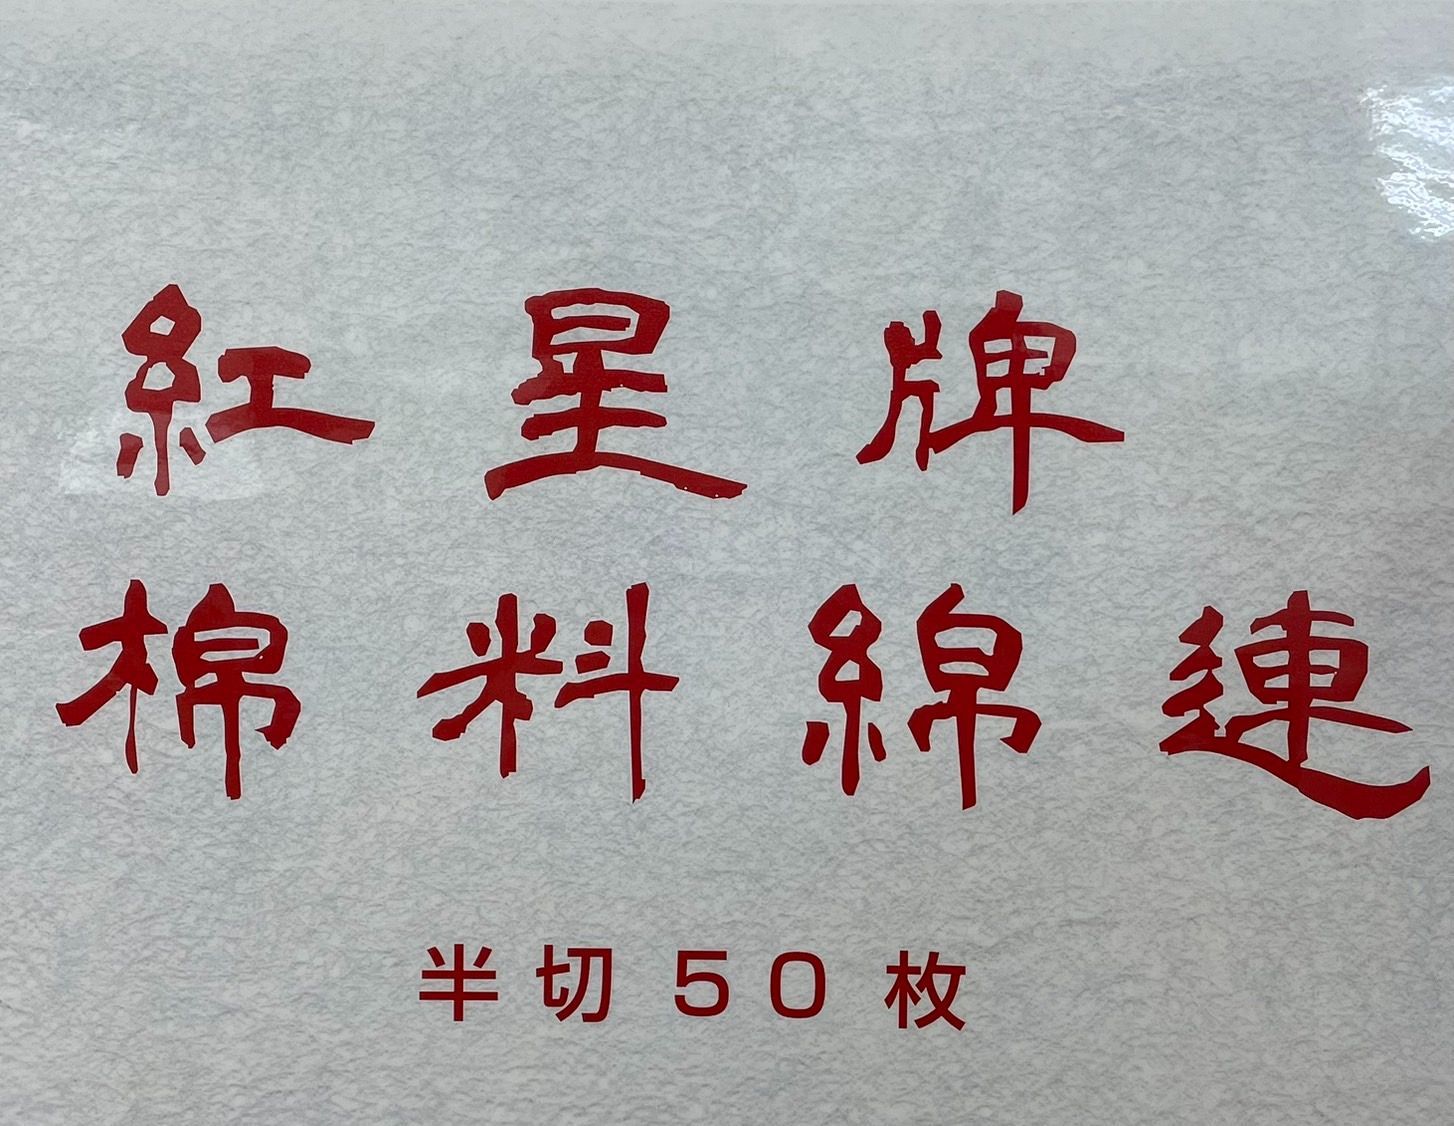 紅星牌
棉料綿連
半切50枚